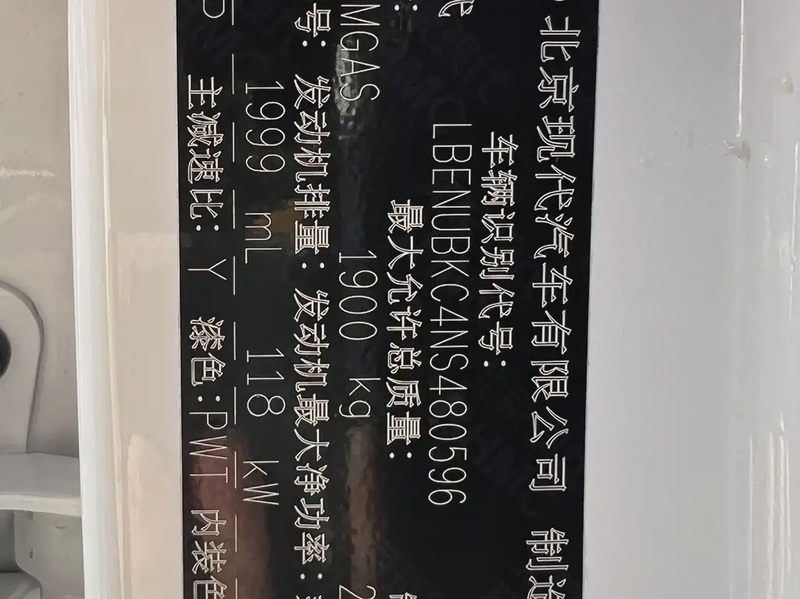 北京现代汽车有限公司 制造
车辆识别代号:
LBENUBKC4NS480596
最大允许总质量:
MGAS 1900 kg
号: 发动机排量: 发动机最大净功率:
1999 mL 118 kW
主减速比: Y 漆色:PWT 内装色